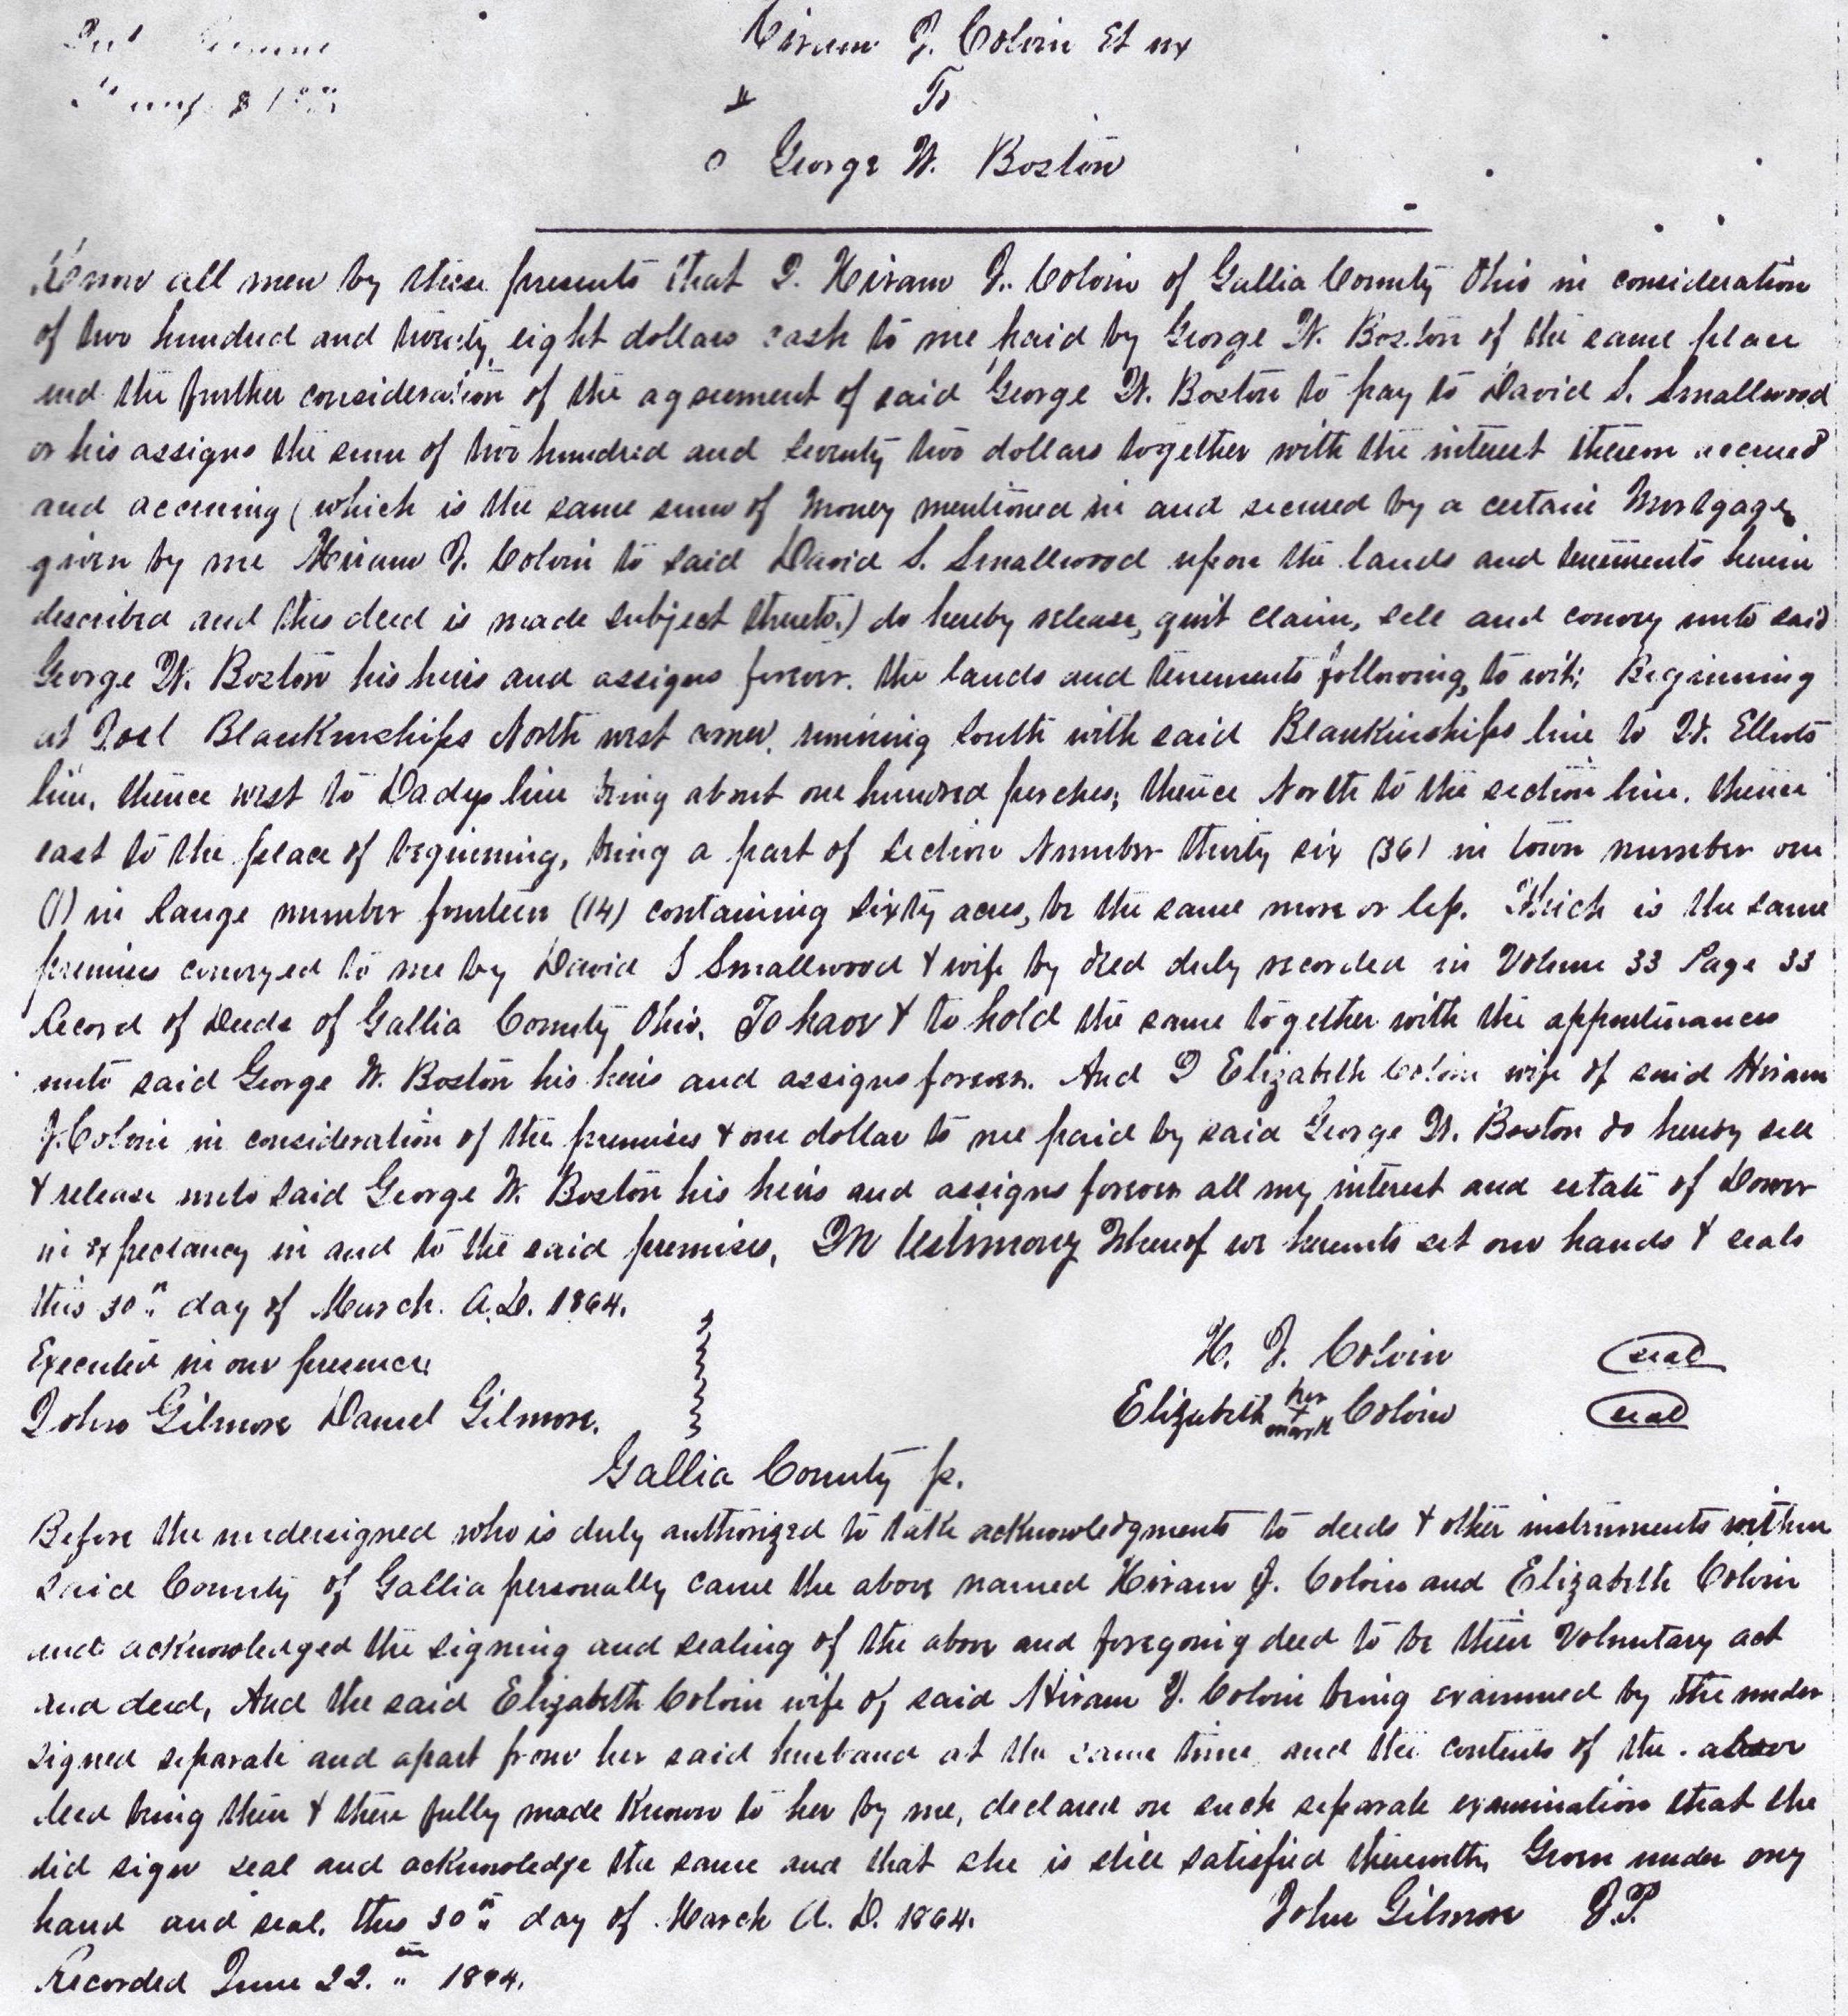 Hiram J. Colvin Et ux
To
George W. Boston
Know all men by these presents that I. Hiram J. Colvin of Gallia County Ohio in consideration
of two hundred and twenty eight dollars cash to me paid by George W. Boston of the same place
and the further consideration of the agreement of said George W. Boston to pay to David S. Smallwood
or his assigns the sum of two hundred and seventy two dollars together with the interest thereon accrued
and accruing (which is the same sum of money mentioned in and secured by a certain Mortgage
given by me Hiram J. Colvin to said David S. Smallwood upon the lands and tenements herein
described and this deed is made subject thereto.) do hereby release, quit claim, sell and convey unto said
George W. Boston his heirs and assigns forever. the lands and tenements following, to wit; Beginning
at Joel Blankinships North west corner, running South with said Blankinships line to W. Elliots
line, thence west to Dadys line being about one hundred perches; thence North to the section line, thence
east to the place of beginning, being a part of section Number thirty six (36) in town number one
(1) in Range number fourteen (14) containing sixty acres, be the same more or less. Which is the same
premises conveyed to me by David S Smallwood & wife by deed duly recorded in Volume 33 Page 33
Record of Deeds of Gallia County Ohio. To have & to hold the same together with the appurtenances
unto said George W. Boston his heirs and assigns forever. And I Elizabeth Colvin wife of said Hiram
J. Colvin in consideration of the premises & one dollar to me paid by said George W. Boston do hereby sell
& release unto said George W. Boston his heirs and assigns forever all my interest and estate of Dower
in expectancy in and to the said premises, In testimony Whereof we hereunto set our hands & seals
this 30th day of March. A.D. 1864.
Executed in our presence
John Gilmore Daniel Gilmore.
H. J. Colvin seal
Elizabeth her x mark Colvin seal
Gallia County ss.
Before the undersigned who is duly authorized to take acknowledgments to deeds & other instruments within
said County of Gallia personally came the above named Hiram J. Colvin and Elizabeth Colvin
and acknowledged the signing and sealing of the above and foregoing deed to be their Voluntary act
and deed, And the said Elizabeth Colvin wife of said Hiram J. Colvin being examined by the under
signed separate and apart from her said husband at the same time and the contents of the above
deed being then & there fully made Known to her by me, declared on such separate examination that she
did sign seal and acknowledge the same and that she is still satisfied therewith, Given under my
hand and seal, this 30th day of March A. D. 1864.
John Gilmore J.P.
Recorded June 22. 1864.